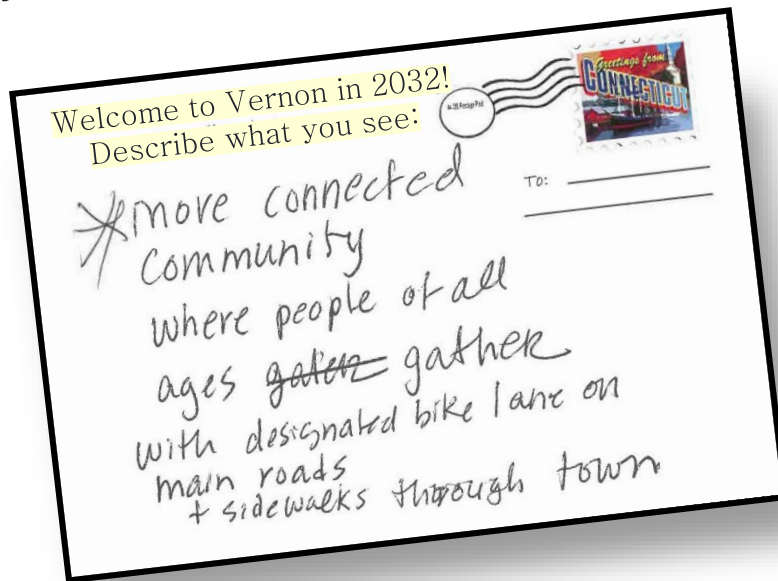 Welcome to Vernon in 2032!
Describe what you see:
Greetings from
CONNECTICUT
TO:
*more connected
community
where people of all
ages gather
with designated bike lane on
main roads
+ sidewalks through town